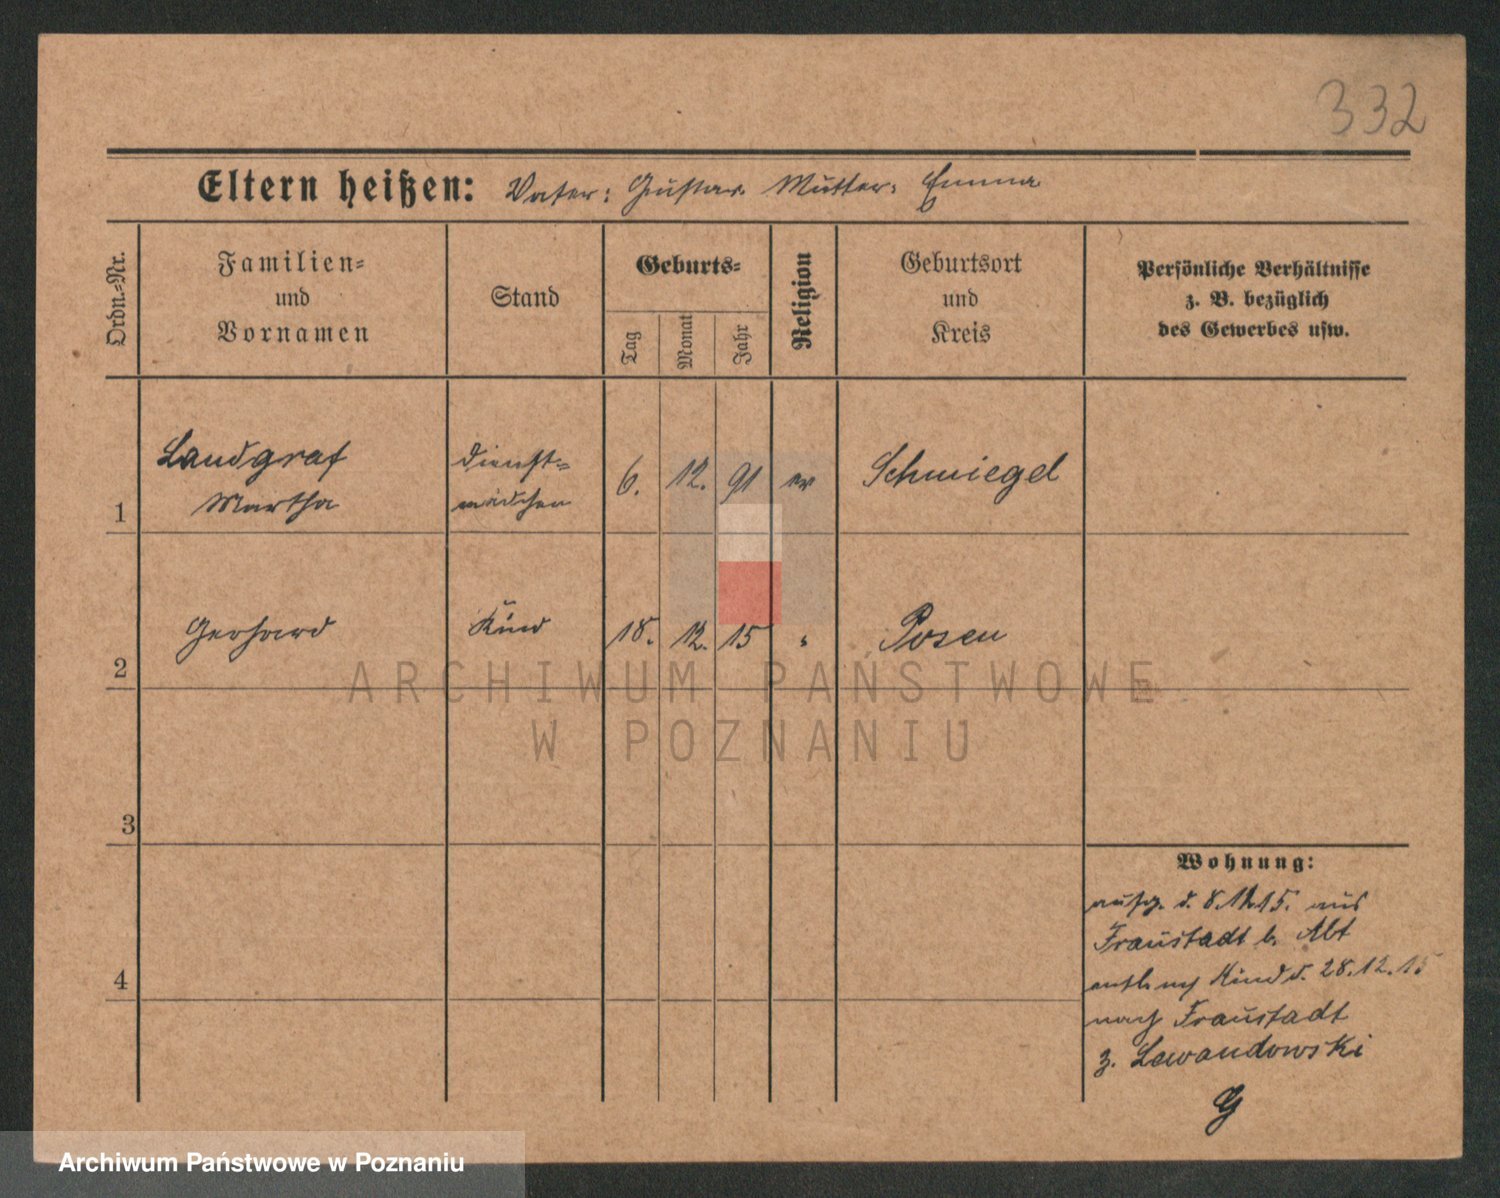 332
Eltern heißen: Vater: Gustav Mutter: Emma
Ordn.-Nr.
Familien-
und
Vornamen
Stand
Geburts-
Tag
Monat
Jahr
Religion
Geburtsort
und
Kreis
Persönliche Verhältnisse
z. B. bezüglich
des Gewerbes usw.
1
Landgraf
Martha
Dienst=
mädchen
6. 12. 91 ev
Schmiegel
2
Gerhard
Kind
18. 12. 15 "
Posen
3
4
Wohnung:
aufg. d. 8. 15. aus
Fraustadt b. Abt
entl. Kind d. 28.12.15
nach Fraustadt
z. Lewandowski
G
ARCHIWUM PAŃSTWOWE
W POZNANIU
Archiwum Państwowe w Poznaniu